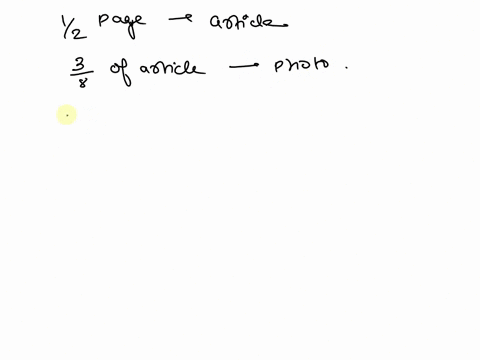 1/2 page → article.
3/8 of article → photo.